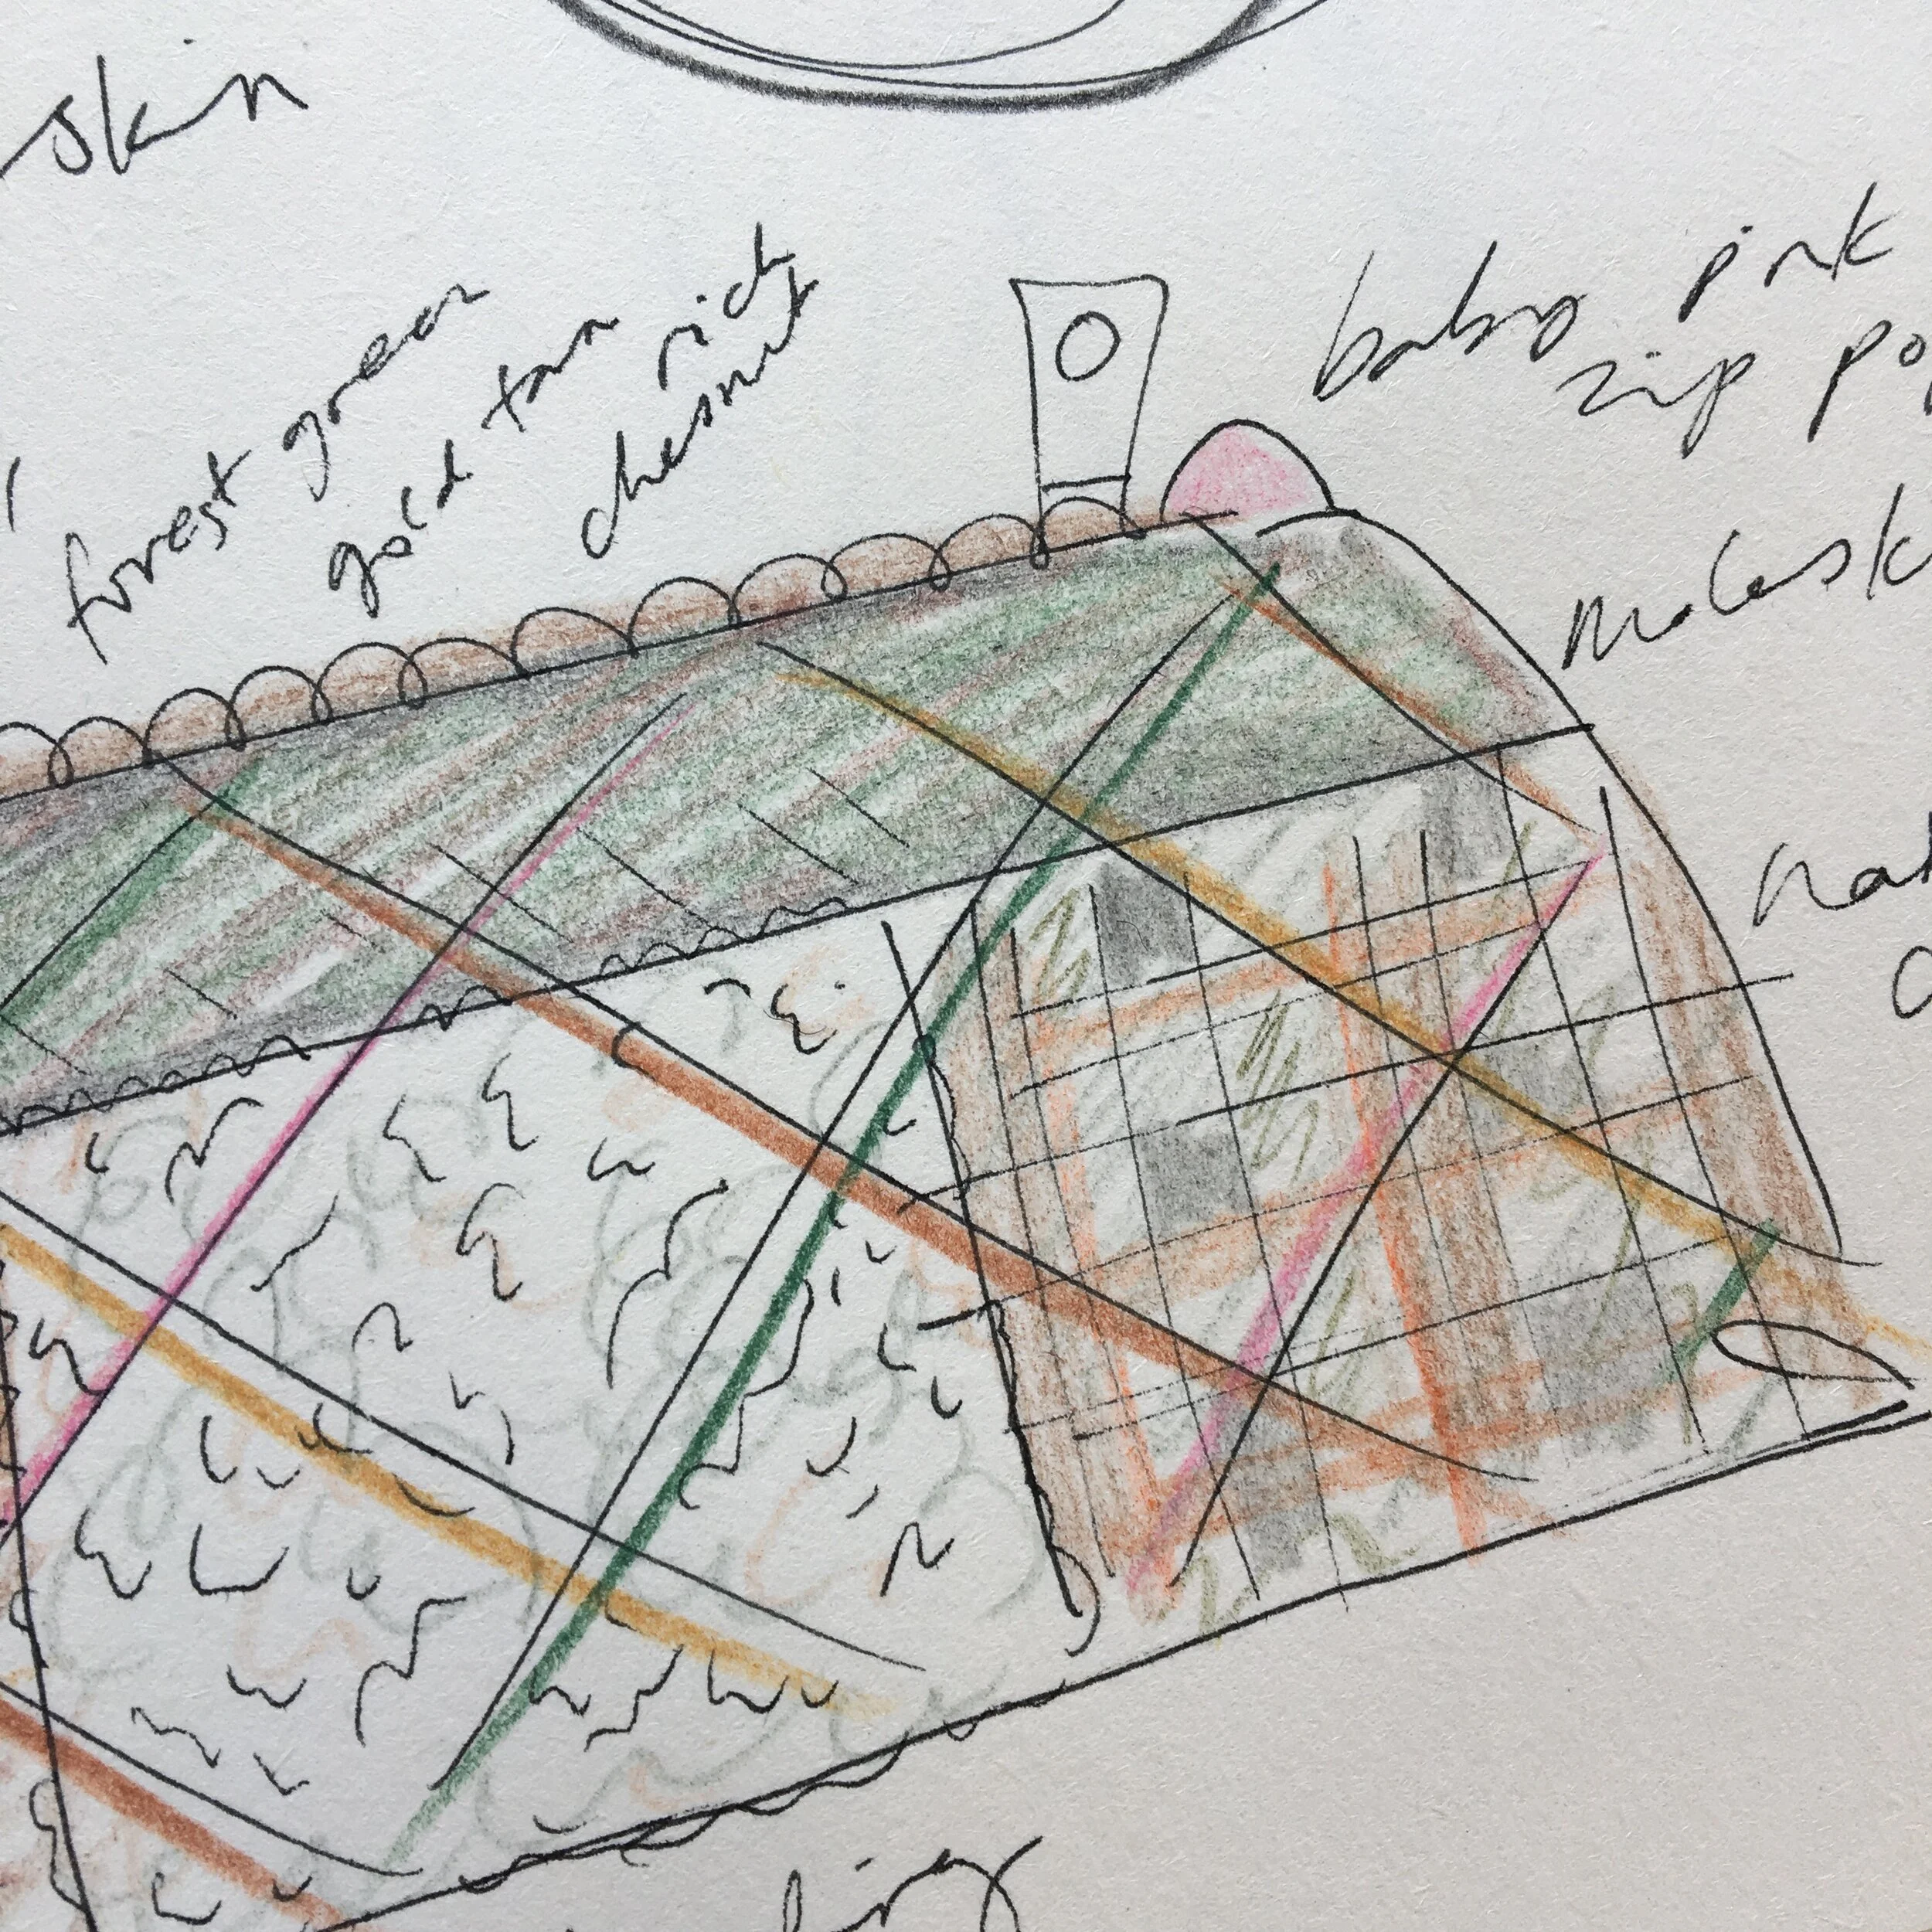 skin
forest green
gold tan
rich
chesnut
baby pink
zip po
Molesk